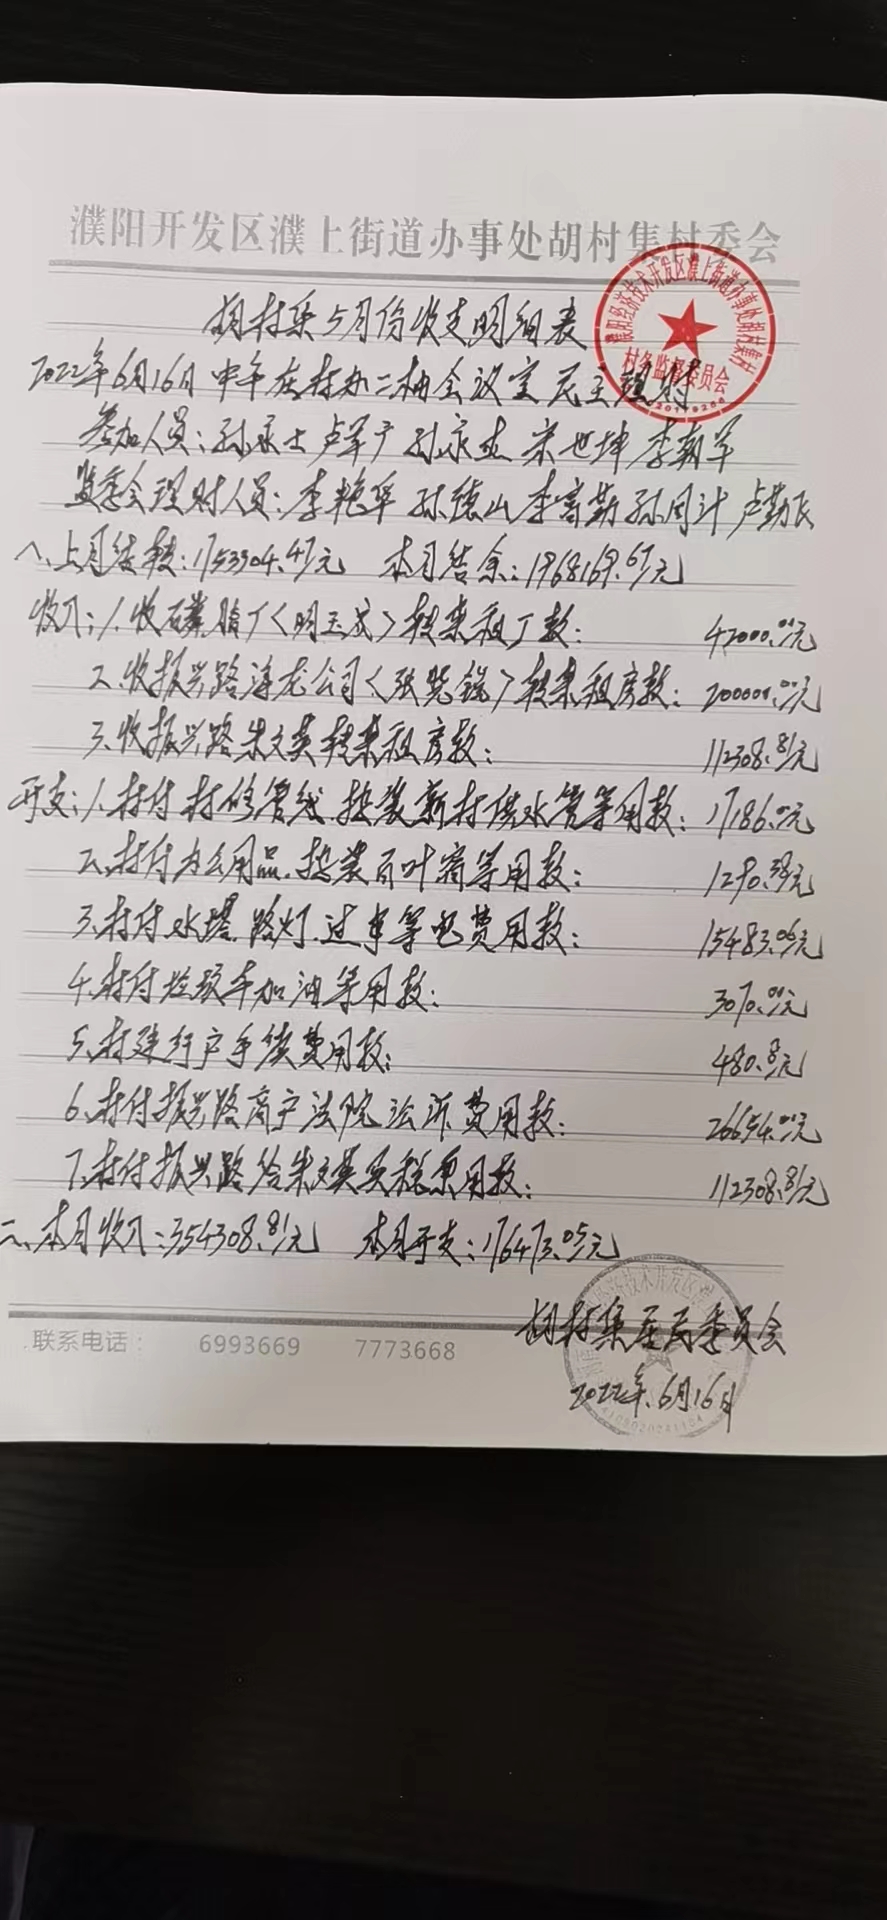 濮阳开发区濮上街道办事处胡村集村委会
胡村集5月份收支明细表
2022年6月16日中午在村办二楼会议室民主理财
参加人员：孙 卢军 孙 宋世坤 李朝军
监委会理财人员：李艳军 孙德山 李富勤 孙同计 卢勤民
一、上月结转：1753904.47元 本月结余：1968169.67元
收入：1.收磷脂厂〈明玉武〉转来租厂款： 42000.00元
2.收振兴路海龙公司〈张 〉转来租房款：200000.00元
3.收振兴路朱文英转来租房款： 112308.81元
开支：1.村付村修管线.换装新村供水管等用款：17186.00元
2.村付办公用品.换装百叶窗等用款： 1290.38元
3.村付水塔.路灯.过車等电费用款： 15483.06元
4.村付垃圾车加油等用款： 3070.00元
5.村建行户手续费用款： 480.8元
6.村付振兴路商户法院讼诉费用款： 26654.00元
7.村付振兴路给朱文英买税票用款： 112308.81元
二、本月收入：354308.81元 本月开支：176473.05元
胡村集居民委员会
2022年6月16日
联系电话： 6993669 7773668
濮阳经济技术开发区濮上街道办事处胡村集村
村务监督委员会